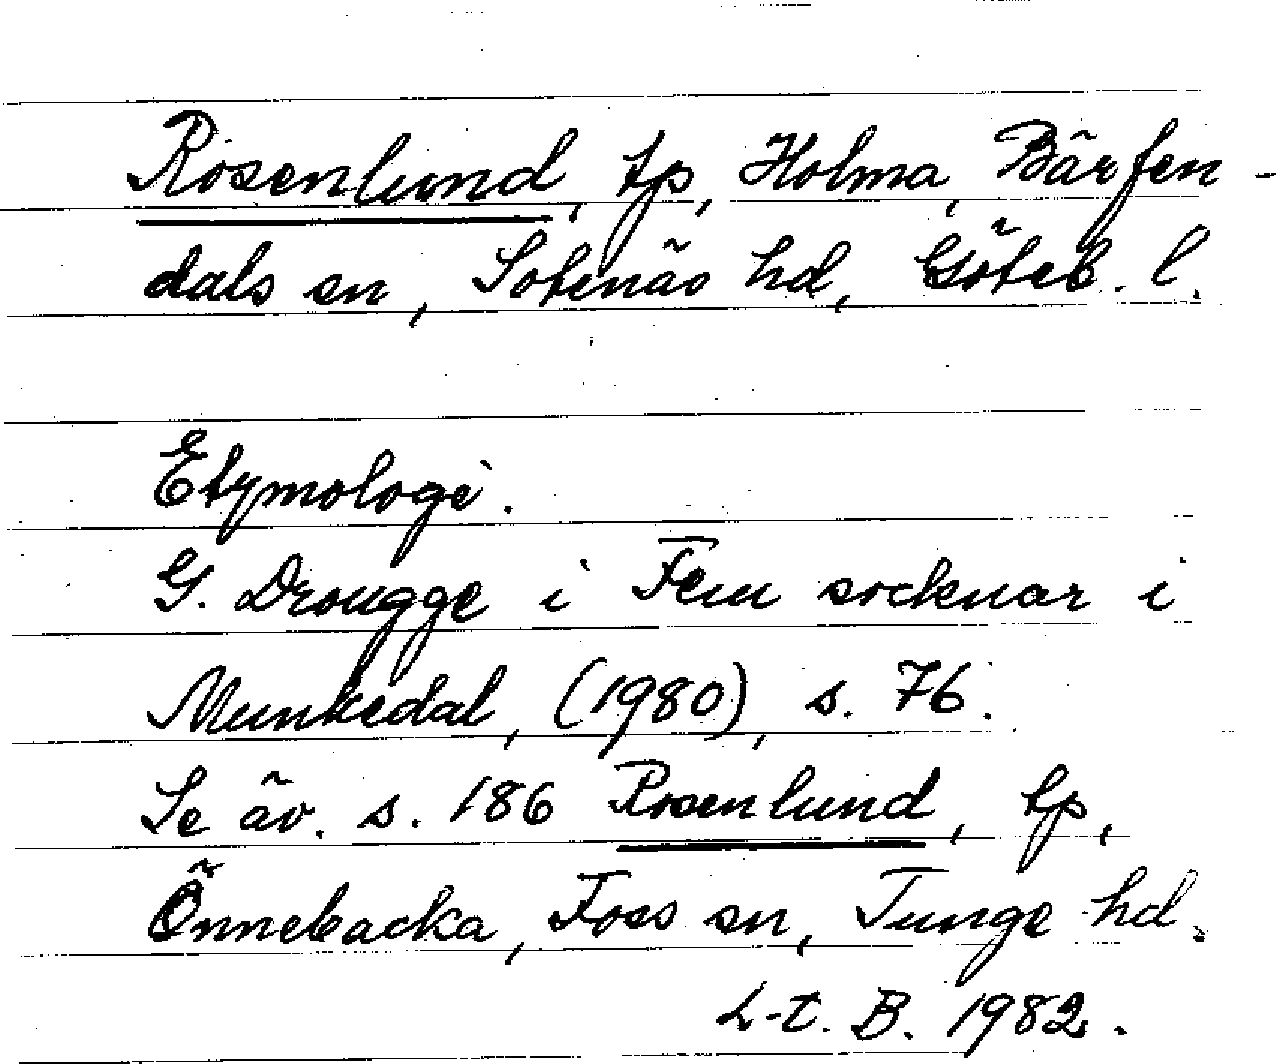 Rosenlund, tp, Holma, Bärfen-
dals sn, Sotenäs hd, Göteb. l.
Etymologi.
G. Drougge i Fem socknar i
Munkedal, (1980), s. 76.
Se äv. s. 186 Rosenlund, tp,
Önnebacka, Foss sn, Tunge hd.
L-t. B. 1982.